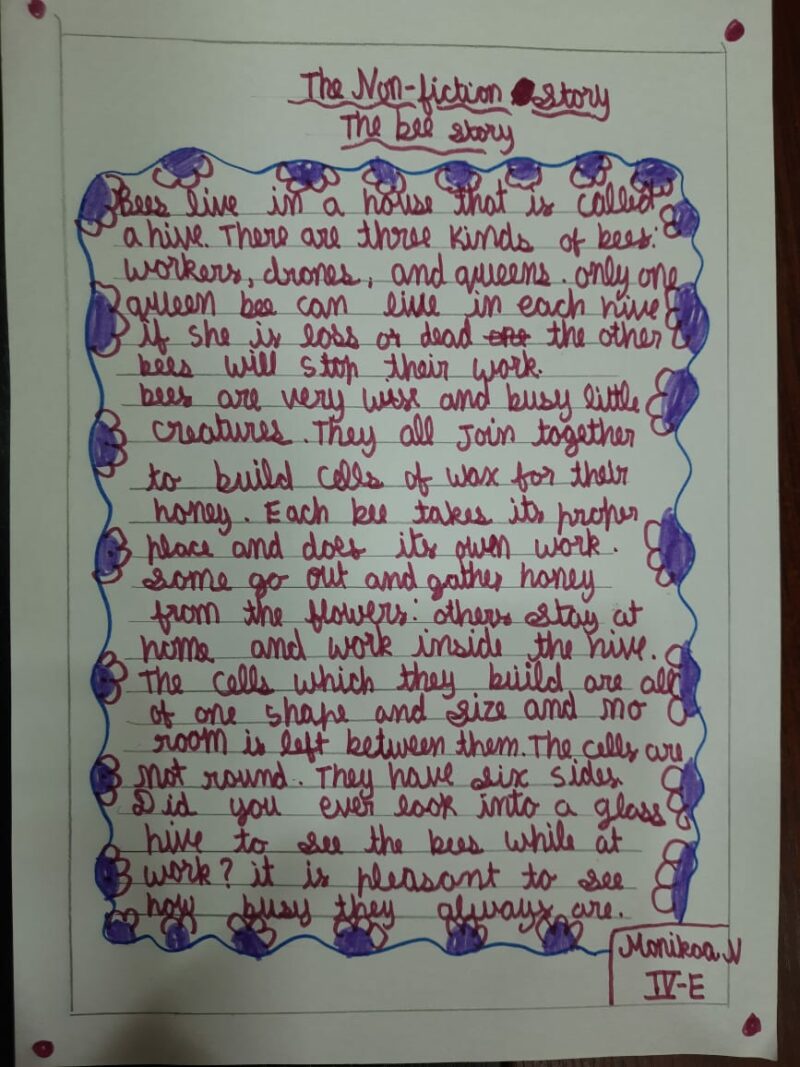 The Non-fiction story
The bee story
Bees live in a house that is called
a hive. There are three kinds of bees:
workers, drones, and queens. only one
queen bee can live in each hive
if she is loss or dead the other
bees will stop their work.
bees are very wise and busy little
creatures. They all Join together
to build cells of wax for their
honey. Each bee takes its proper
place and does its own work.
some go out and gather honey
from the flowers: others stay at
home and work inside the hive.
The cells which they build are all
of one shape and size and no
room is left between them. The cells are
not round. They have six sides
Did you ever look into a glass
hive to see the bees while at
work? it is pleasant to see
how busy they always are.
Monikaa N
IV-E